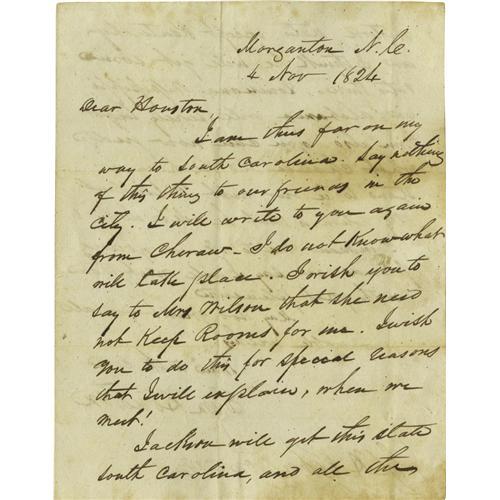 Morganton N.C.
4 Nov 1824
Dear Houston
I am thus far on my
way to South Carolina. Say nothing
of this thing to our friends in the
City. I will write to you again
from Cheraw - I do not know what
will take place. I wish you to
say to Mrs Wilson that she need
not Keep Rooms for me. I wish
you to do this for special reasons
that I will explain, when we
meet!
Jackson will get this state
South Carolina, and all the